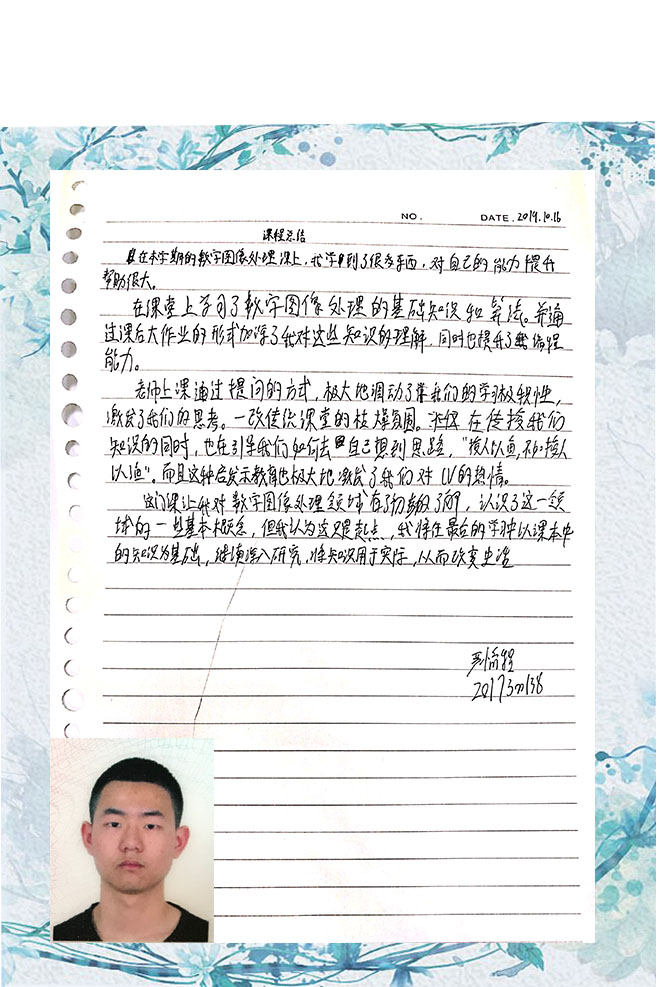 NO.
DATE. 2019.10.16
课程总结
在本学期的数字图像处理课上，我学到了很多东西，对自己的能力提升
帮助很大。
在课堂上学习了数字图像处理的基础知识和算法。并通
过课后大作业的形式加深了我对这些知识的理解，同时也提升了我编程
能力。
老师上课通过提问的方式，极大地调动了我们的学习积极性，
激发了我们的思考。一改传统课堂的枯燥氛围。在传授我们
知识的同时，也在引导我们如何去自己想到思路，“授人以鱼，不如授人
以渔”。而且这种启发示教育也极大地激发了我们对CV的热情。
这门课让我对数字图像处理领域有了初步的了解，认识了这一领
域的一些基本概念，但我认为这只是起点，我将在最后的学习中以课本中
的知识为基础，继续深入研究，将知识用于实际，从而改变生活